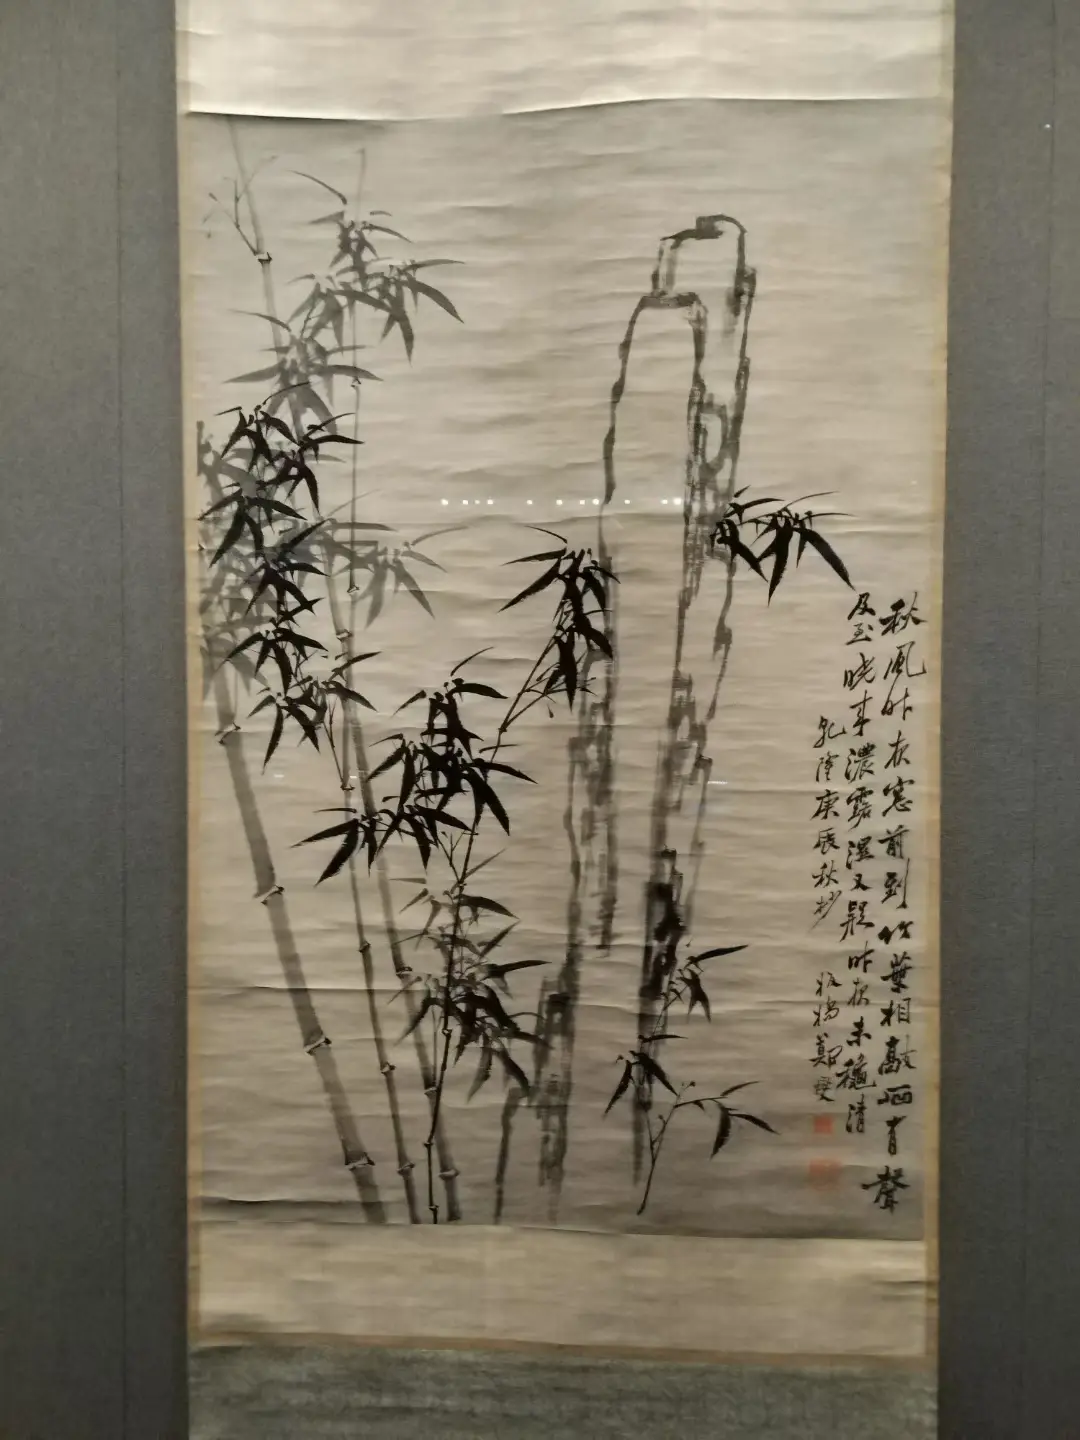 秋風昨夜窓前到竹葉相敲晒有聲
及至曉來濃露濕又疑昨夜未穐清
乾隆庚辰秋杪
板橋鄭燮